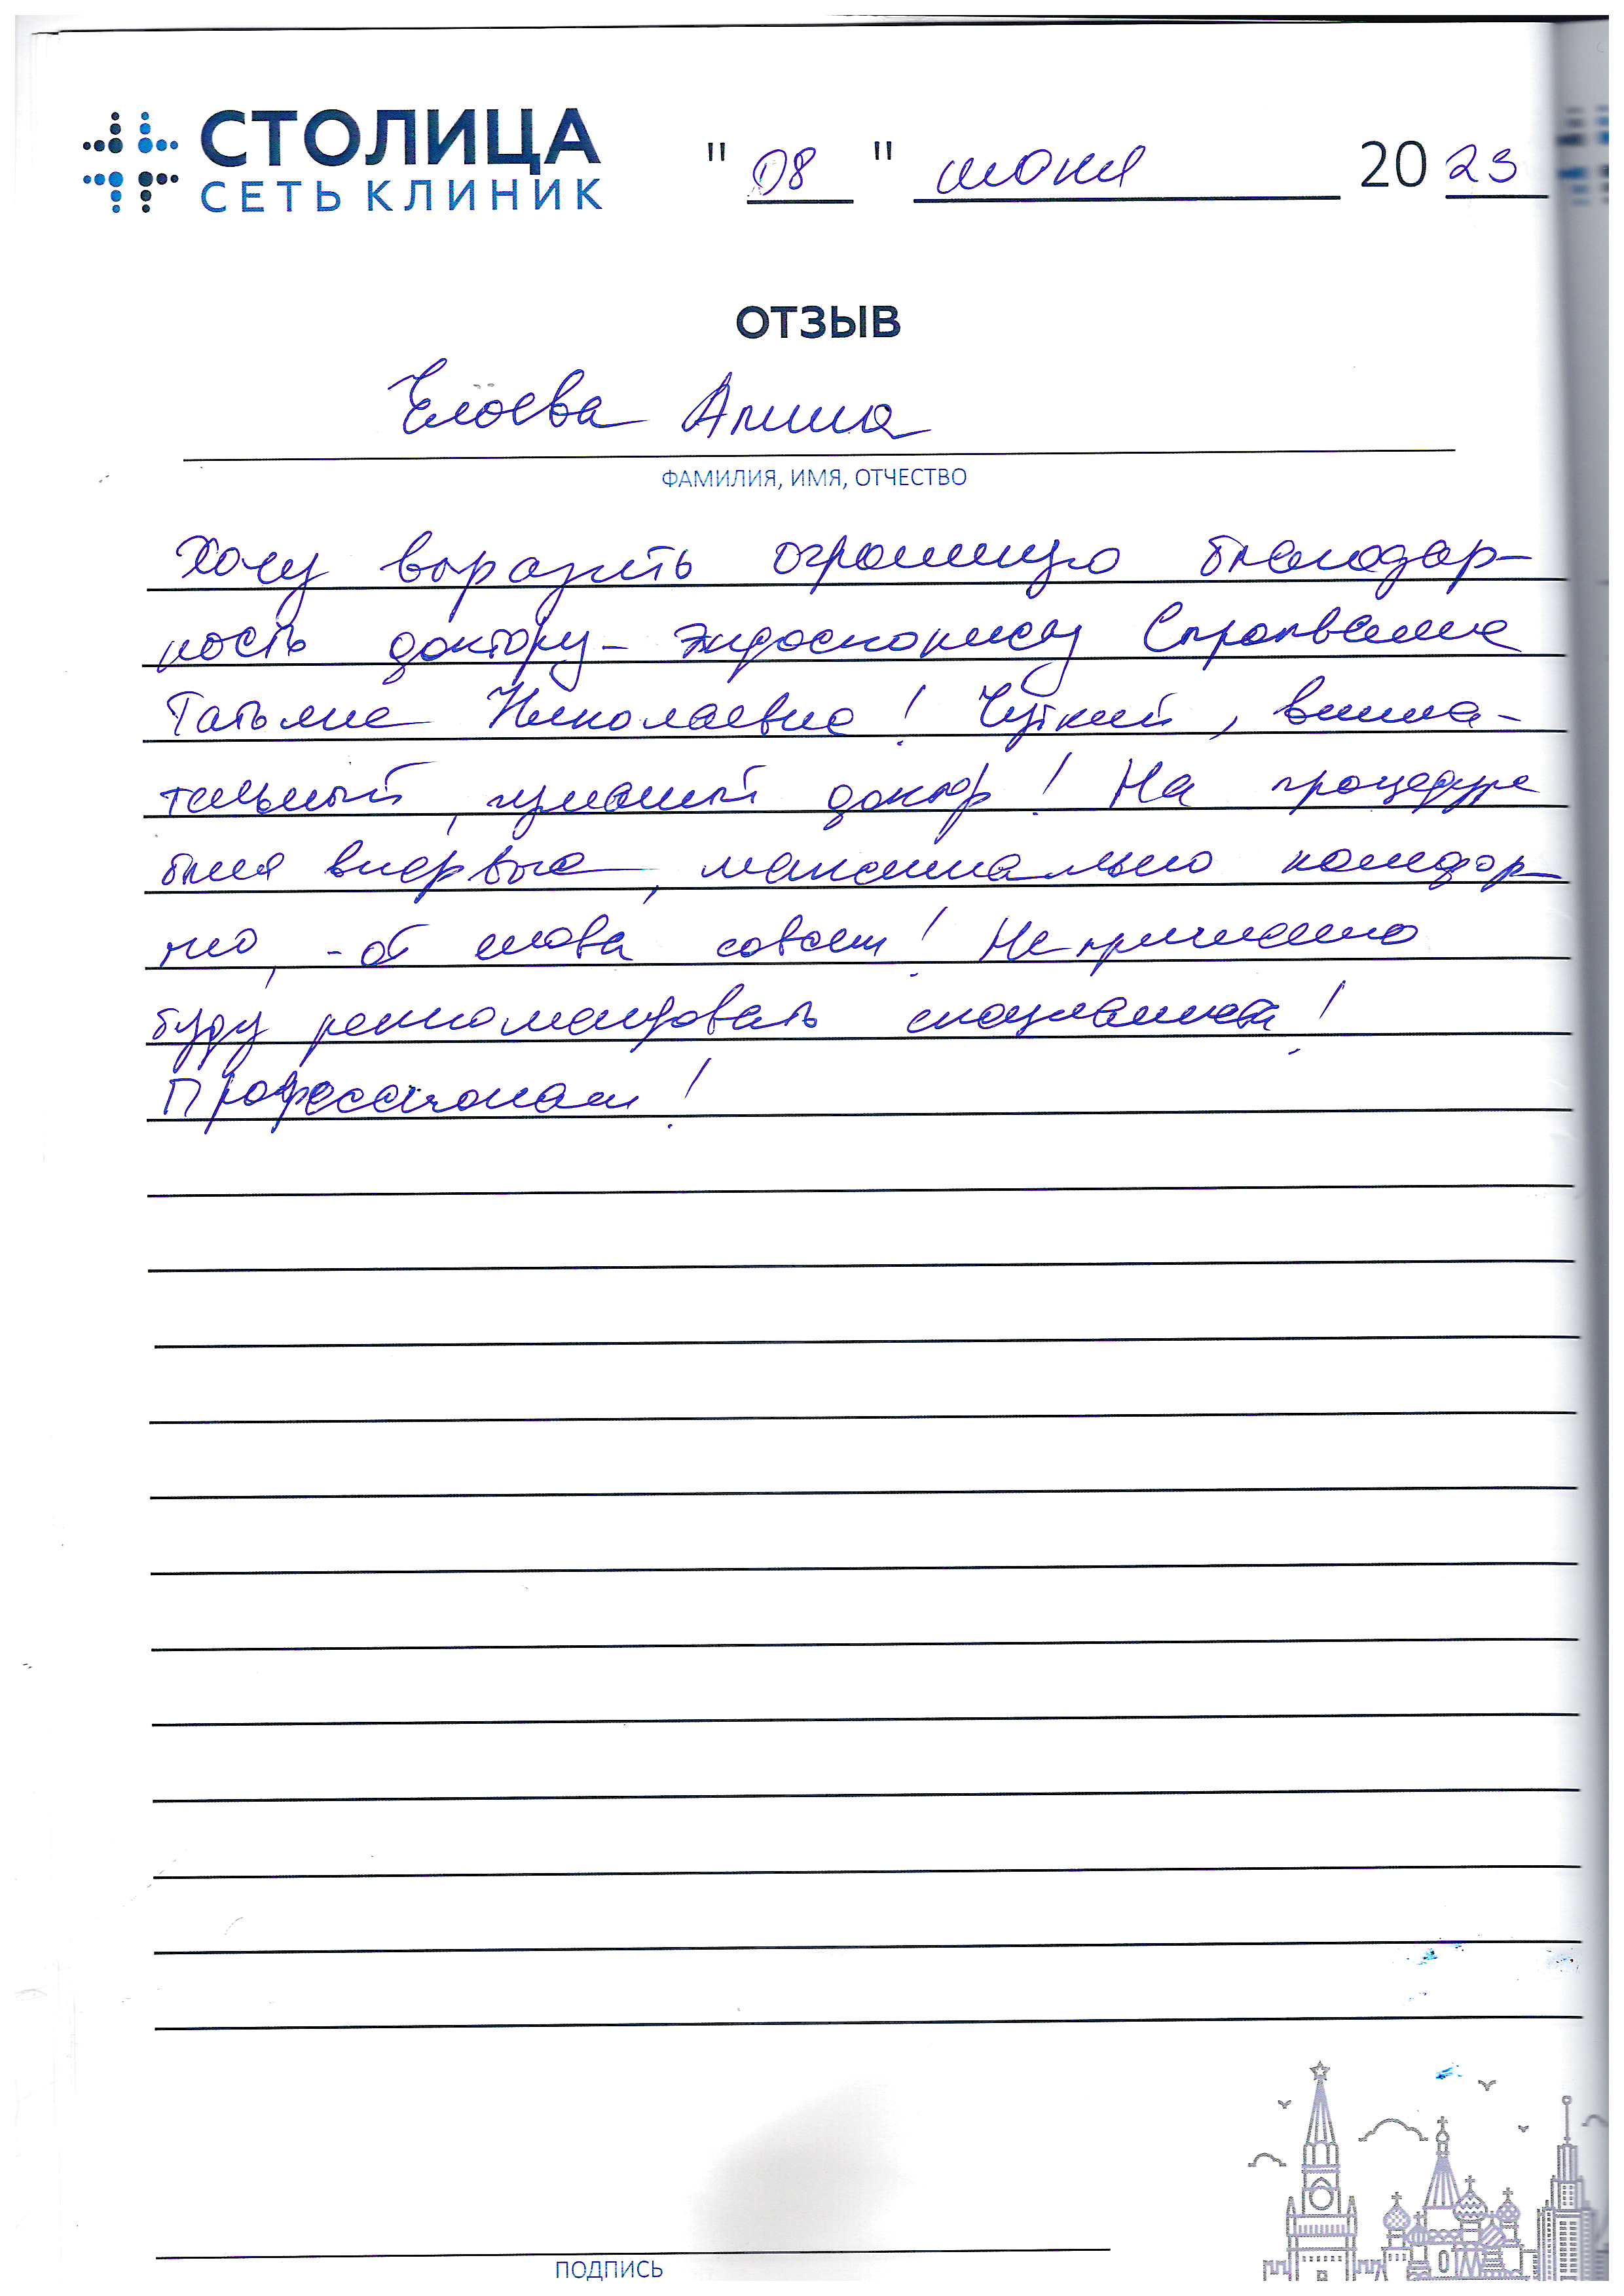 СТОЛИЦА
СЕТЬ КЛИНИК
"08" июня 2023
ОТЗЫВ
Елоева Алина
ФАМИЛИЯ, ИМЯ, ОТЧЕСТВО
Хочу выразить огромную благодар-
ность доктору-эндоскописту
Татьяне Николаевне! Чуткий, внима-
тельный, нужный доктор! На процедуре
была впервые, максимально комфор-
тно, - от слова совсем! Непременно
буду рекомендовать специалиста!
Профессионал!
ПОДПИСЬ